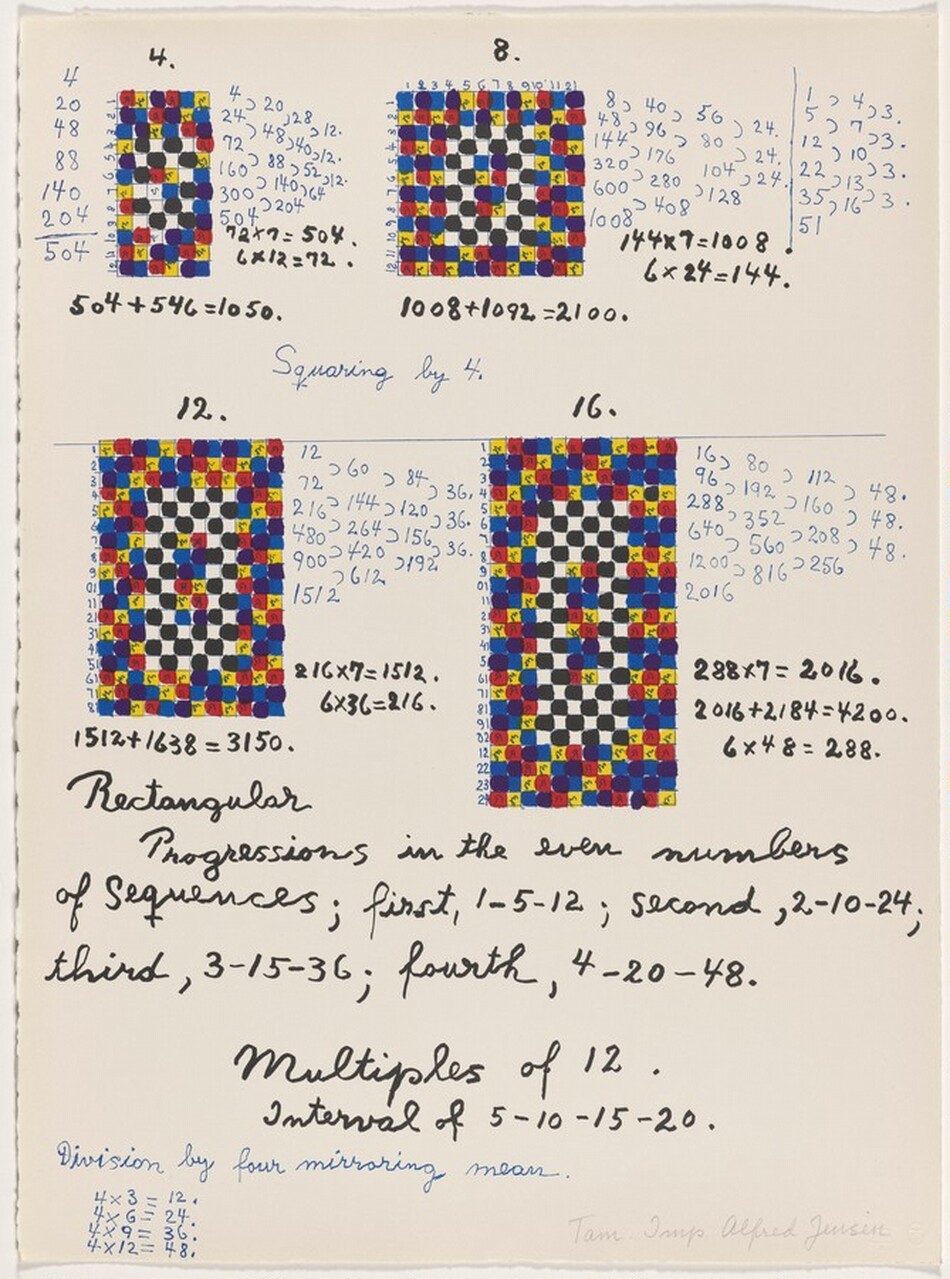 4.
8.
4
20
48
88
140
204
504
4 20
24 28
48 12.
72 40
88 12.
160 52
140 12.
300 64
204
504
72x7=504.
6x12=72.
504+546=1050.
1 2 3 4 5 6 7 8 9 10 11 12
8 40 56
48 96 80 24.
144 176 24.
320 104
600 280 24.
408 128
1008
144x7=1008.
6x24=144.
1008+1092=2100.
1 4 3.
5 7
12 10 3.
22 13 3.
35 16 3.
51
Squaring by 4.
12.
16.
12
60
72 84
144 36.
216 120
264 36.
480 156
420 36.
900 192
612
1512
216x7=1512.
6x36=216.
1512+1638=3150.
16 80 112
96 192 48.
288 160
352 48.
640 208
560 48.
1200 256
816
2016
288x7=2016.
2016+2184=4200.
6x48=288.
Rectangular
Progressions in the even numbers
of Sequences; first, 1-5-12; second, 2-10-24;
third, 3-15-36; fourth, 4-20-48.
Multiples of 12.
Interval of 5-10-15-20.
Division by four mirroring mean.
4x3=12.
4x6=24.
4x9=36.
4x12=48.
Tam. Imp. Alfred Jensen